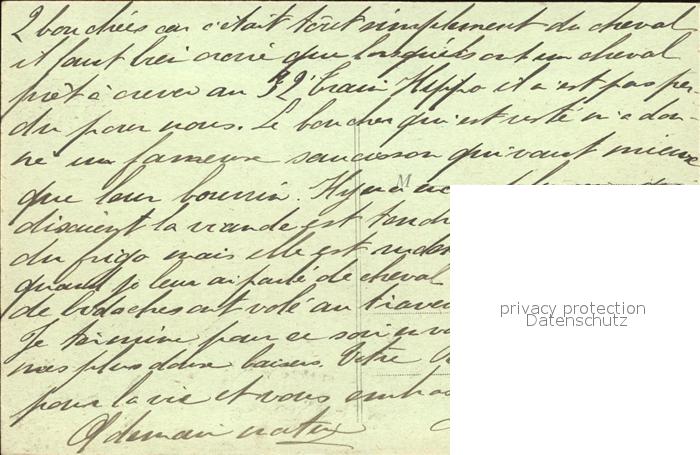 2 bouchées car c'était tout simplement du cheval
il faut bien croire que lorsqu'ils ont un cheval
prêt à crever au 32e Train Hippo il n'est pas per-
du pour nous. Le boucher qui est resté m'a don-
né un fameux saucisson qui vaut mieux
que leur bourrin. Il y en a
M
disaient la viande est tendre
du frigo mais elle est
quand je leur ai parlé de cheval
de bidoche ont volé au travers
Je termine pour ce soir
mes plus doux baisers. Votre
pour la vie et vous
A demain
privacy protection
Datenschutz